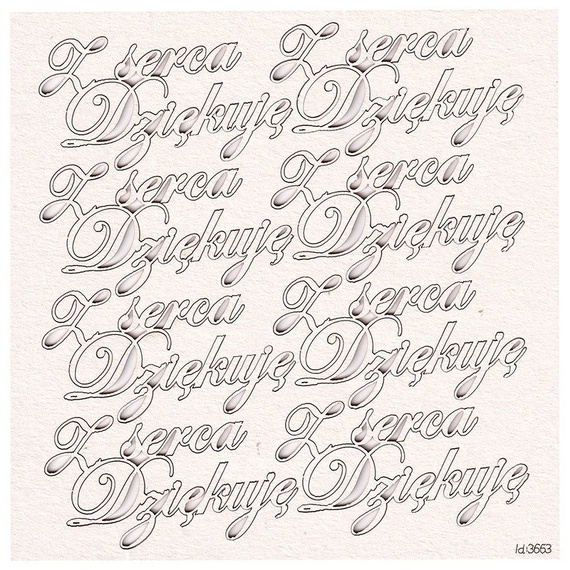 Z serca
Dziękuję
Z serca
Dziękuję
Z serca
Dziękuję
Z serca
Dziękuję
Z serca
Dziękuję
Z serca
Dziękuję
Z serca
Dziękuję
Z serca
Dziękuję
Id:3653